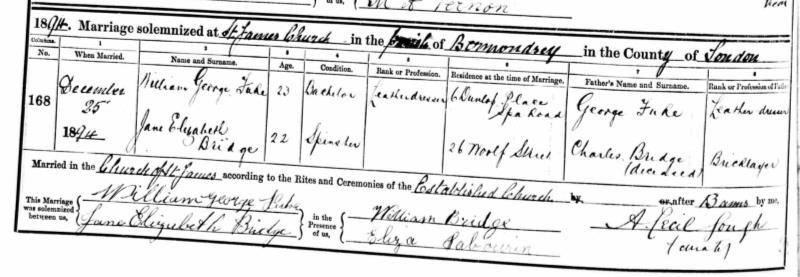 M A Vernon
1894. Marriage solemnized at St James Church in the Parish of Bermondsey in the County of London
Columns. 1 2 3 4 5 6 7 8
No. When Married. Name and Surname. Age. Condition. Rank or Profession. Residence at the time of Marriage. Father's Name and Surname. Rank or Profession of Father
168 December 25th 1894
William George Fuke 23 Bachelor Leatherdresser 6 Dunlop Place Spa Road George Fuke Leather dresser
Jane Elizabeth Bridge 22 Spinster 26 Woolf Street Charles Bridge (deceased) Bricklayer
Married in the Church of St James according to the Rites and Ceremonies of the Established Church by or after Banns by me,
This Marriage was solemnized between us, William George Fuke Jane Elizabeth Bridge in the Presence of us, William Bridge Eliza Sabourin A Cecil Gough (curate)